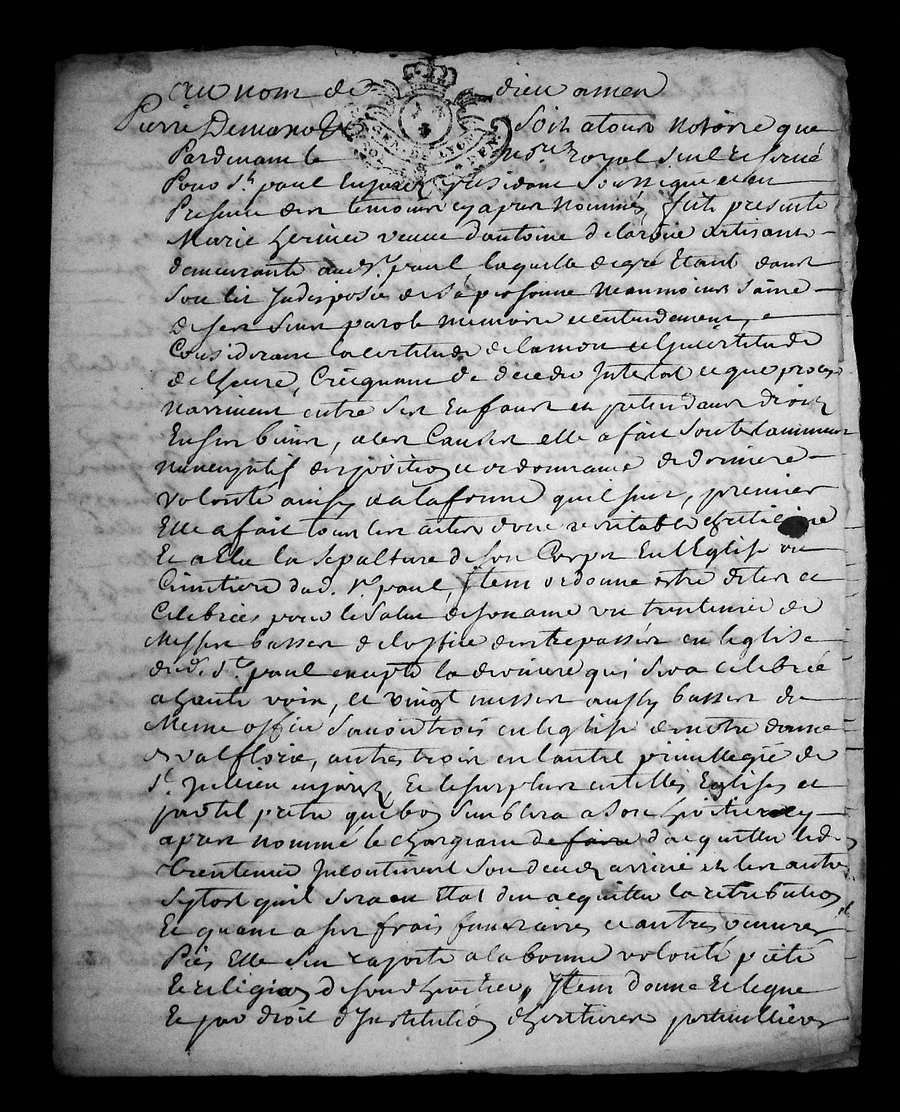 au nom de dieu amen
Pierre Soit atous notoire que
Pardevant le no.re Royal soubsigné
Pour St. paul Enjarez residant soussigné et en
Presence des temoins cy apres nommés, fut presente
Marie veuve d'antoine delarüe artisant
demeurante aud. St. paul, laquelle de gré Etant dans
son lit Indisposée de sa personne neanmoins saine
de ses sens parole memoire et entendement,
Considerant la certitude de la mort et l'Incertitude
de l'heure, Craignant de deceder Intestat et que proces
narrivent entre ses Enfants et pretendans droit
En ses biens, a ces Causes elle a fait son testament
nuncupatif disposition et ordonnance de derniere
volonté ainsy et a la forme quil suit, premier
Elle a fait tous les actes d'une veritable chretienne
Et a Elu la sepulture de son Corps En l'Eglise ou
Cimetiere dud. St. paul, Item ordonne estre dites et
Celebrées pour le salut de son ame un trentenier de
Messes basses de l'office des trepassés en l'eglise
dud. St. paul excepté la derniere qui sera celebrée
a haute voix, et vingt messes aussy basses du
Meme office savoir trois en l'eglise de notre dame
de valflorie, autres trois en l'autel privillegié de
St. Jullien en jarez, Et le surplus en telles Eglises et
par tel pretre que bon semblera a son heritier cy
apres nommé le chargeant de faire d'acquitter led.
trentenier Incontinent son decez arrivé et les autres
sytost quil sera en Etat d'en acquitter la retribution
Et quant a ses frais funeraires et autres oeuvres
Pies Elle s'en raporte a la bonne volonté pieté
Et religion de sond. heritier, Item donne et legue
Et par droit d'Institution d'heritiere particulliere